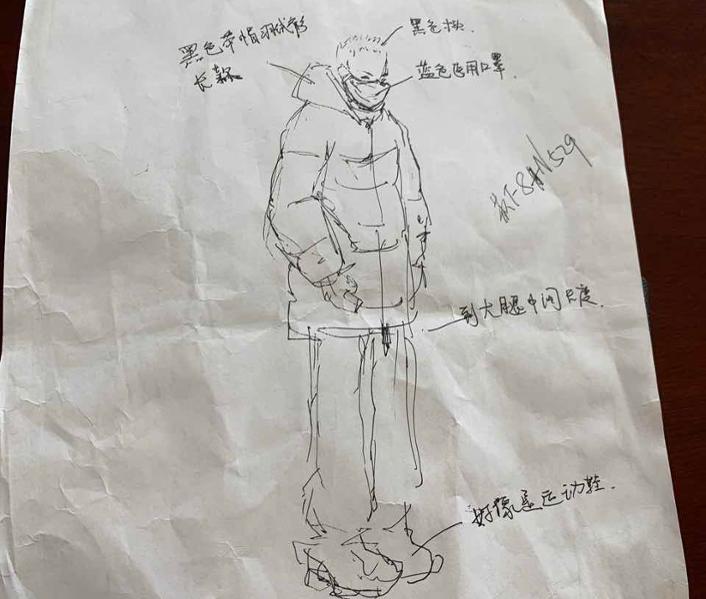 黑色带帽羽绒服
长款
黑色
蓝色医用口罩
8HN529
到大腿中间长度.
好像是运动鞋.